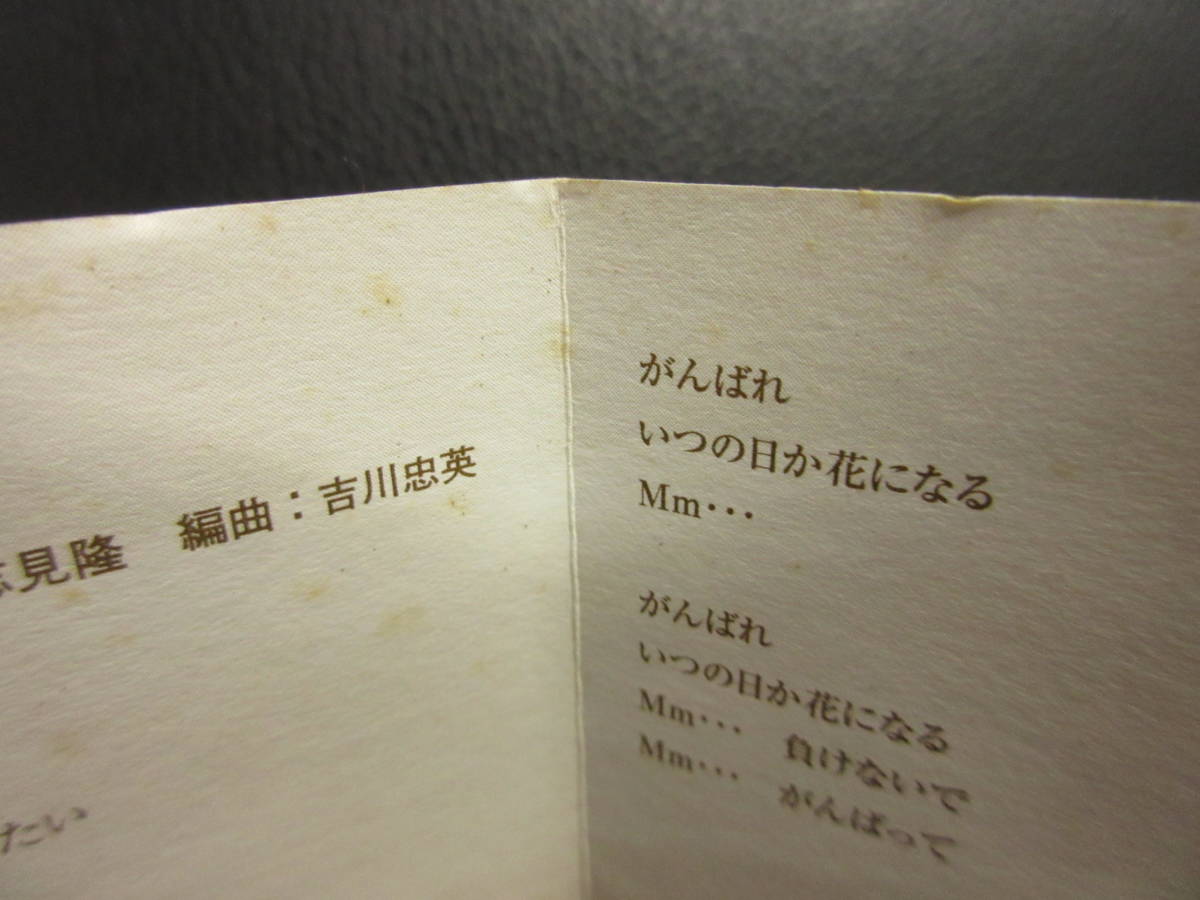 見隆 編曲:吉川忠英
たい
がんばれ
いつの日か花になる
Mm･･･
がんばれ
いつの日か花になる
Mm･･･ 負けないで
Mm･･･ がんばって